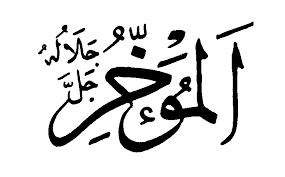 اَلْمُؤَخِّرُ
جَلَّ جَلَالُهُ